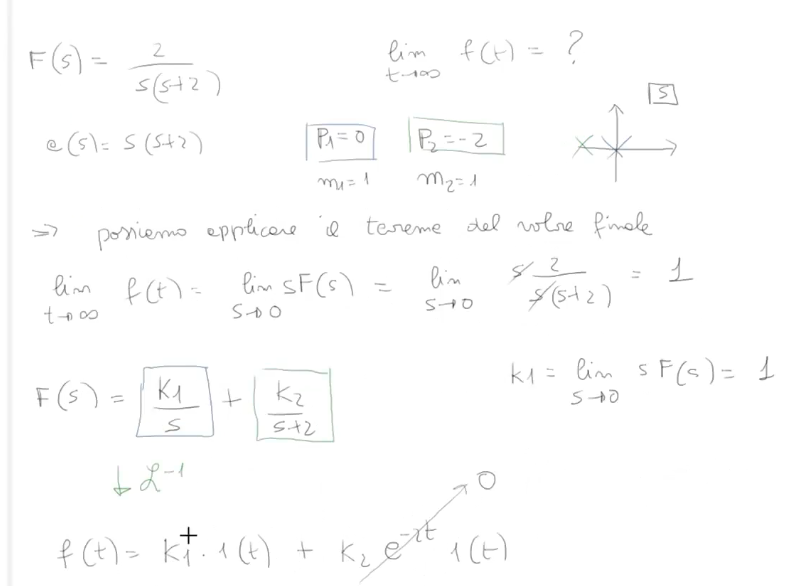 F(s) = 2 / s(s+2)    lim t→∞ f(t) = ?
S
e(s) = s(s+2)    P1=0    P2=-2
m1=1    m2=1
=> possiamo applicare il teorema del valore finale
lim t→∞ f(t) = lim s→0 sF(s) = lim s→0 s 2 / s(s+2) = 1
F(s) = K1 / s + K2 / s+2    k1 = lim s→0 s F(s) = 1
↓ ℒ^-1
0
f(t) = K1 · 1(t) + K2 e^-2t 1(t)